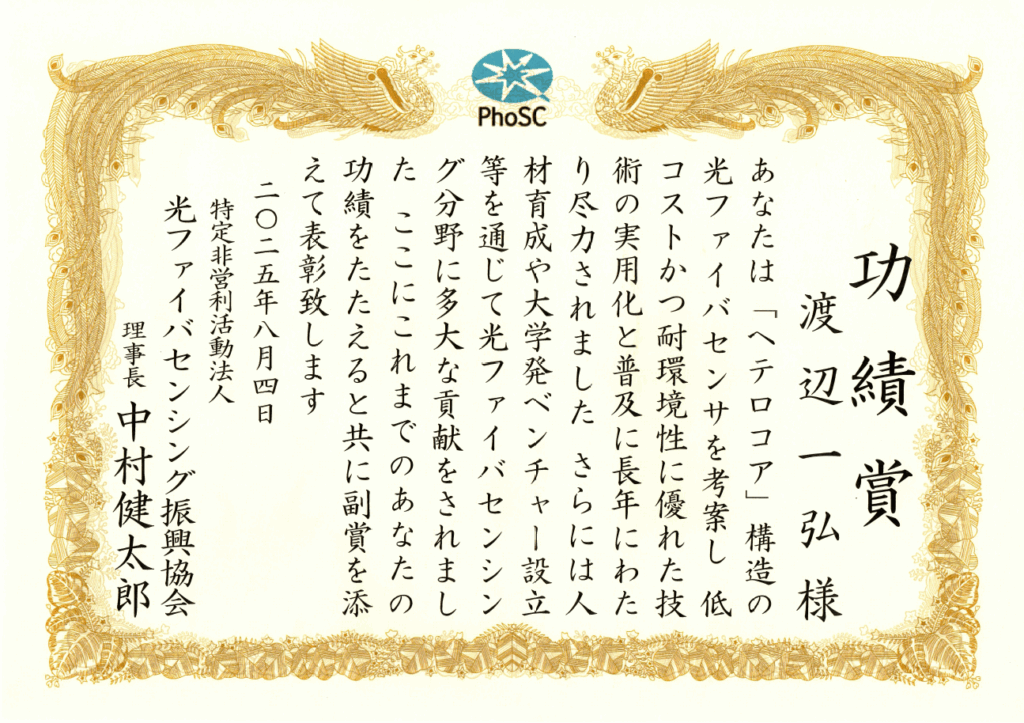 PhoSC
功績賞
渡辺一弘様
あなたは「ヘテロコア」構造の
光ファイバセンサを考案し 低
コストかつ耐環境性に優れた技
術の実用化と普及に長年にわた
り尽力されました さらには人
材育成や大学発ベンチャー設立
等を通じて光ファイバセンシン
グ分野に多大な貢献をされまし
た ここにこれまでのあなたの
功績をたたえると共に副賞を添
えて表彰致します
二〇二五年八月四日
特定非営利活動法人
光ファイバセンシング振興協会
理事長 中村健太郎